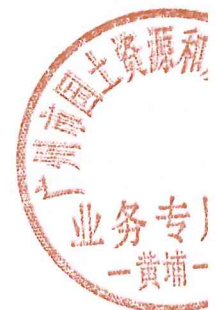 广州市国土资源和
业务专用
一黄埔一